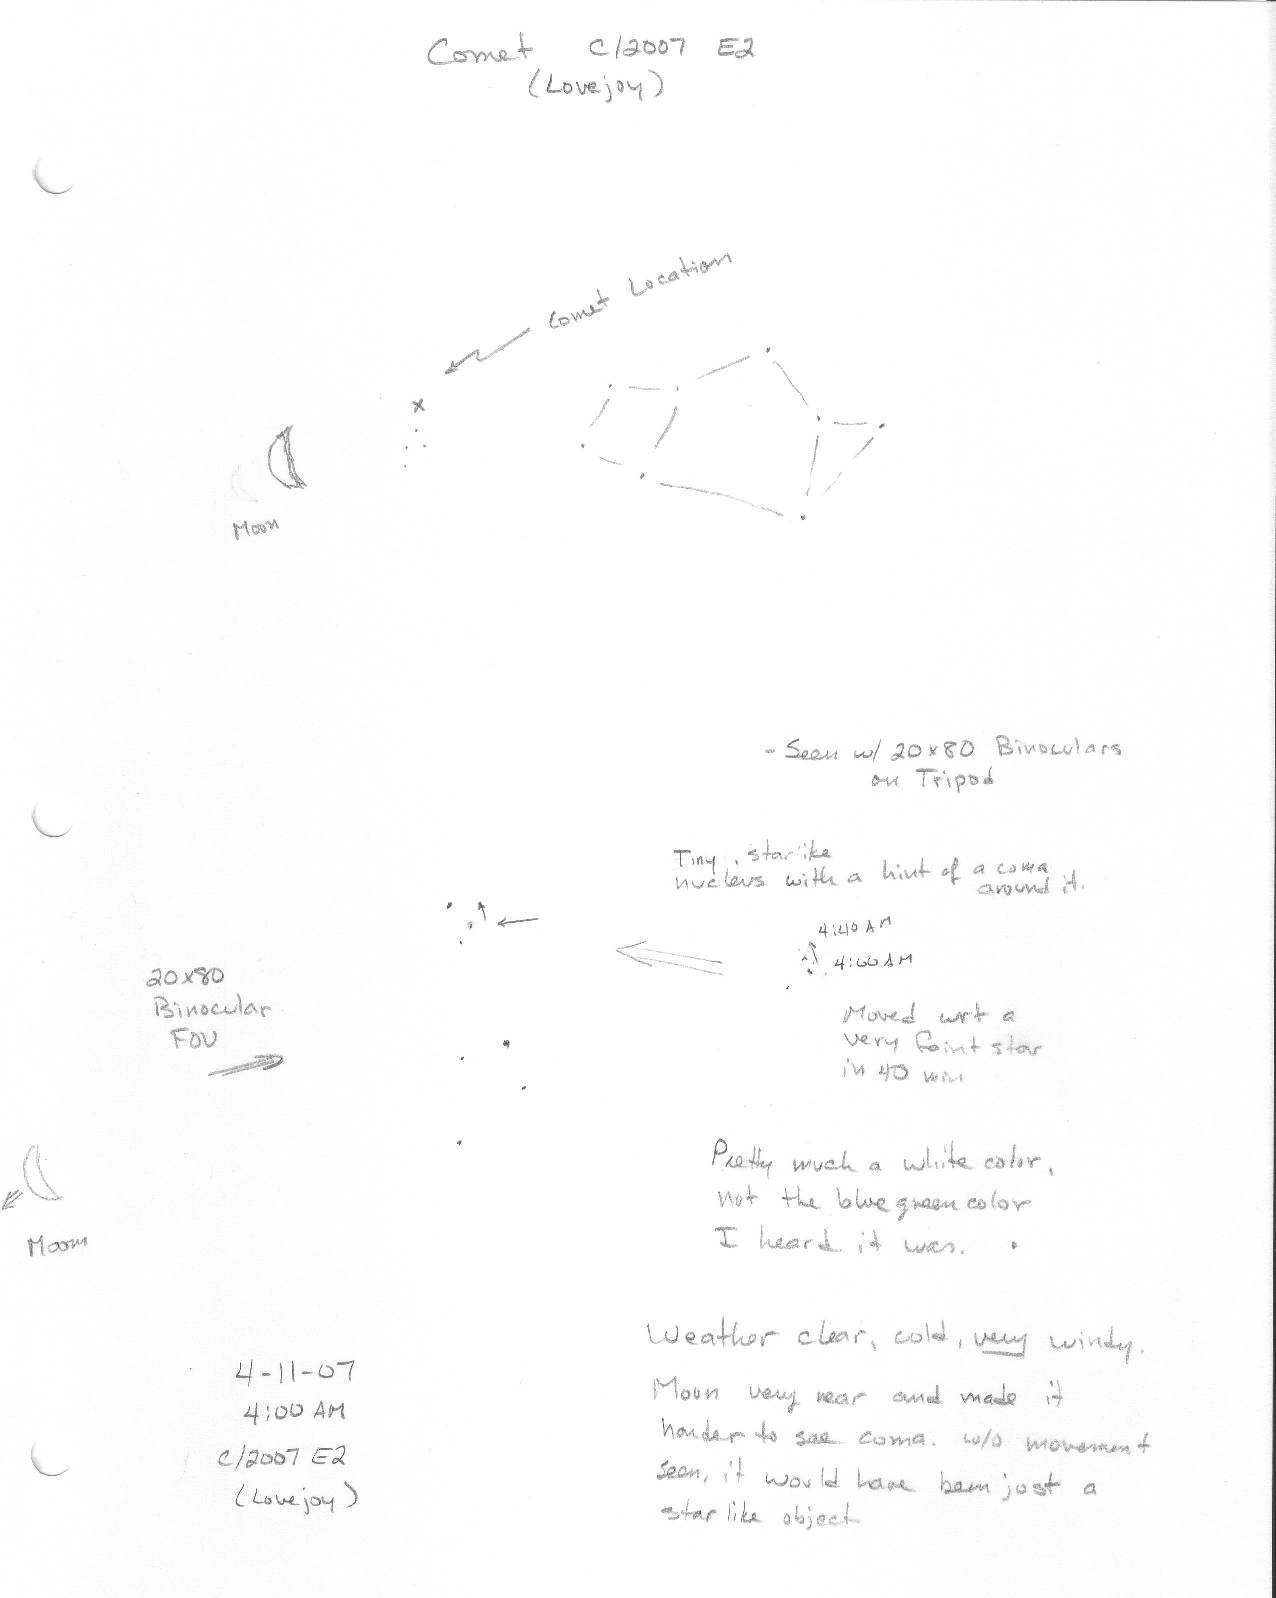 Comet C/2007 E2
(Lovejoy)
Comet Location
x
Moon
- Seen w/ 20x80 Binoculars
on Tripod
Tiny, starlike
nucleus with a hint of a coma
around it.
4:40 AM
4:00 AM
20x80
Binocular
FOV
Moved wrt a
very faint star
in 40 min
Pretty much a white color,
not the blue green color
I heard it was.
Moon
Weather clear, cold, very windy.
Moon very near and made it
harder to see coma. w/o movement
seen, it would have been just a
star like object
4-11-07
4:00 AM
C/2007 E2
(Lovejoy)